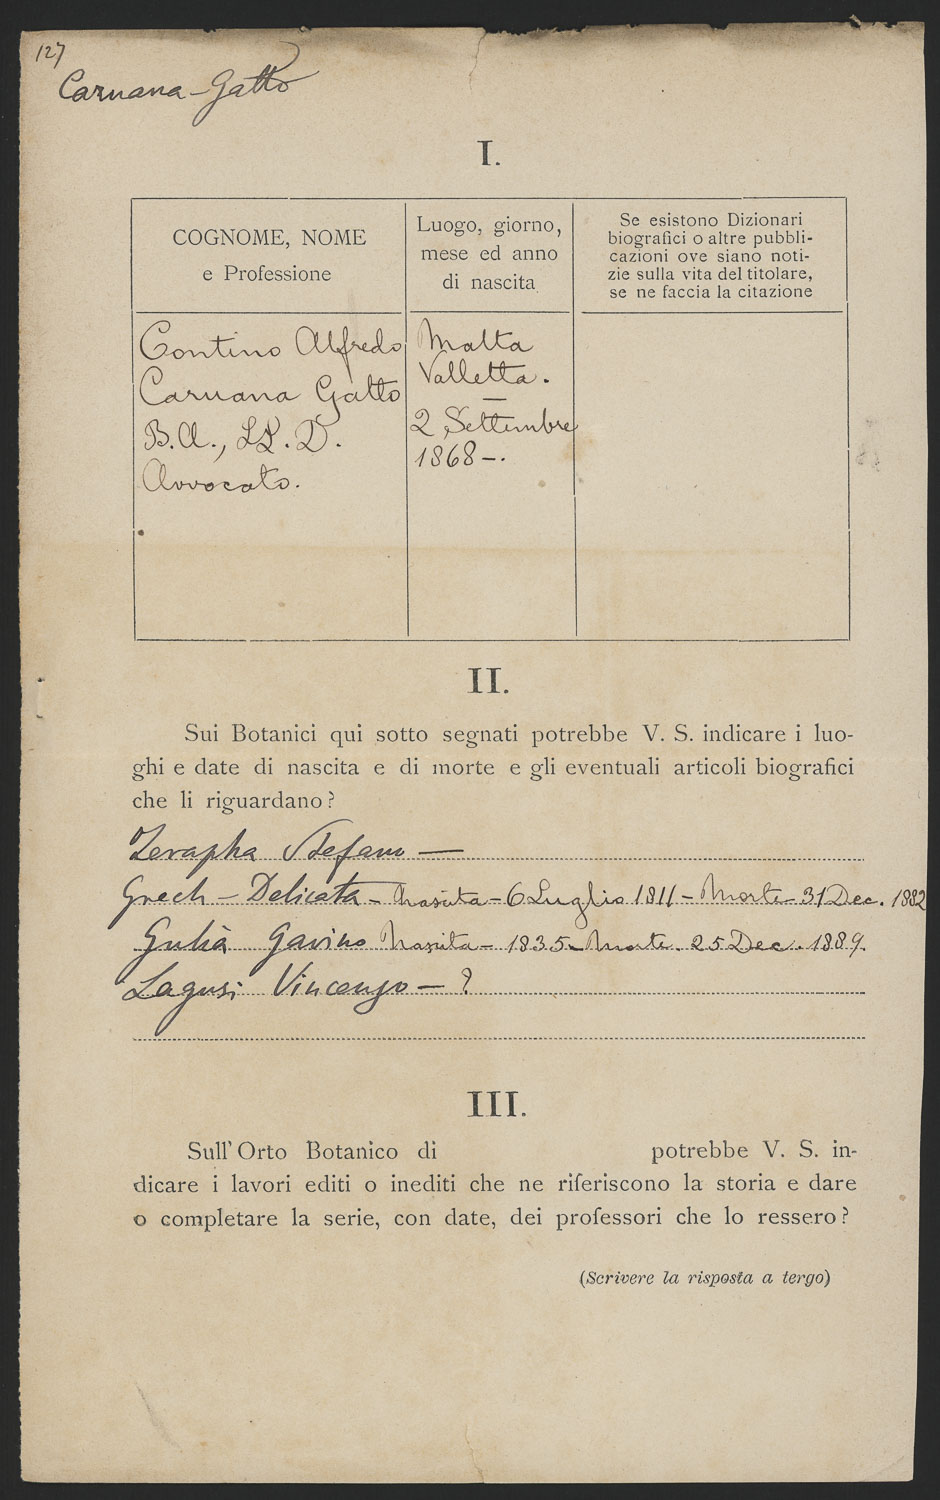 127
Caruana-Gatto
I.
COGNOME, NOME
e Professione
Luogo, giorno,
mese ed anno
di nascita
Se esistono Dizionari
biografici o altre pubbli-
cazioni ove siano noti-
zie sulla vita del titolare,
se ne faccia la citazione
Contino Alfredo
Caruana Gatto
B.A., LL.D.
Avvocato.
Malta
Valletta.
—
2 Settembre
1868-.
II.
Sui Botanici qui sotto segnati potrebbe V. S. indicare i luo-
ghi e date di nascita e di morte e gli eventuali articoli biografici
che li riguardano?
Zerapha Stefano —
Grech - Delicata - Nascita - 6 Luglio 1811 - Morte 31 Dec. 1882
Gulià Gavino Nascita - 1835 - Morte. 25 Dec. 1889.
Lagusi Vincenzo — ?
III.
Sull' Orto Botanico di potrebbe V. S. in-
dicare i lavori editi o inediti che ne riferiscono la storia e dare
o completare la serie, con date, dei professori che lo ressero?
(Scrivere la risposta a tergo)